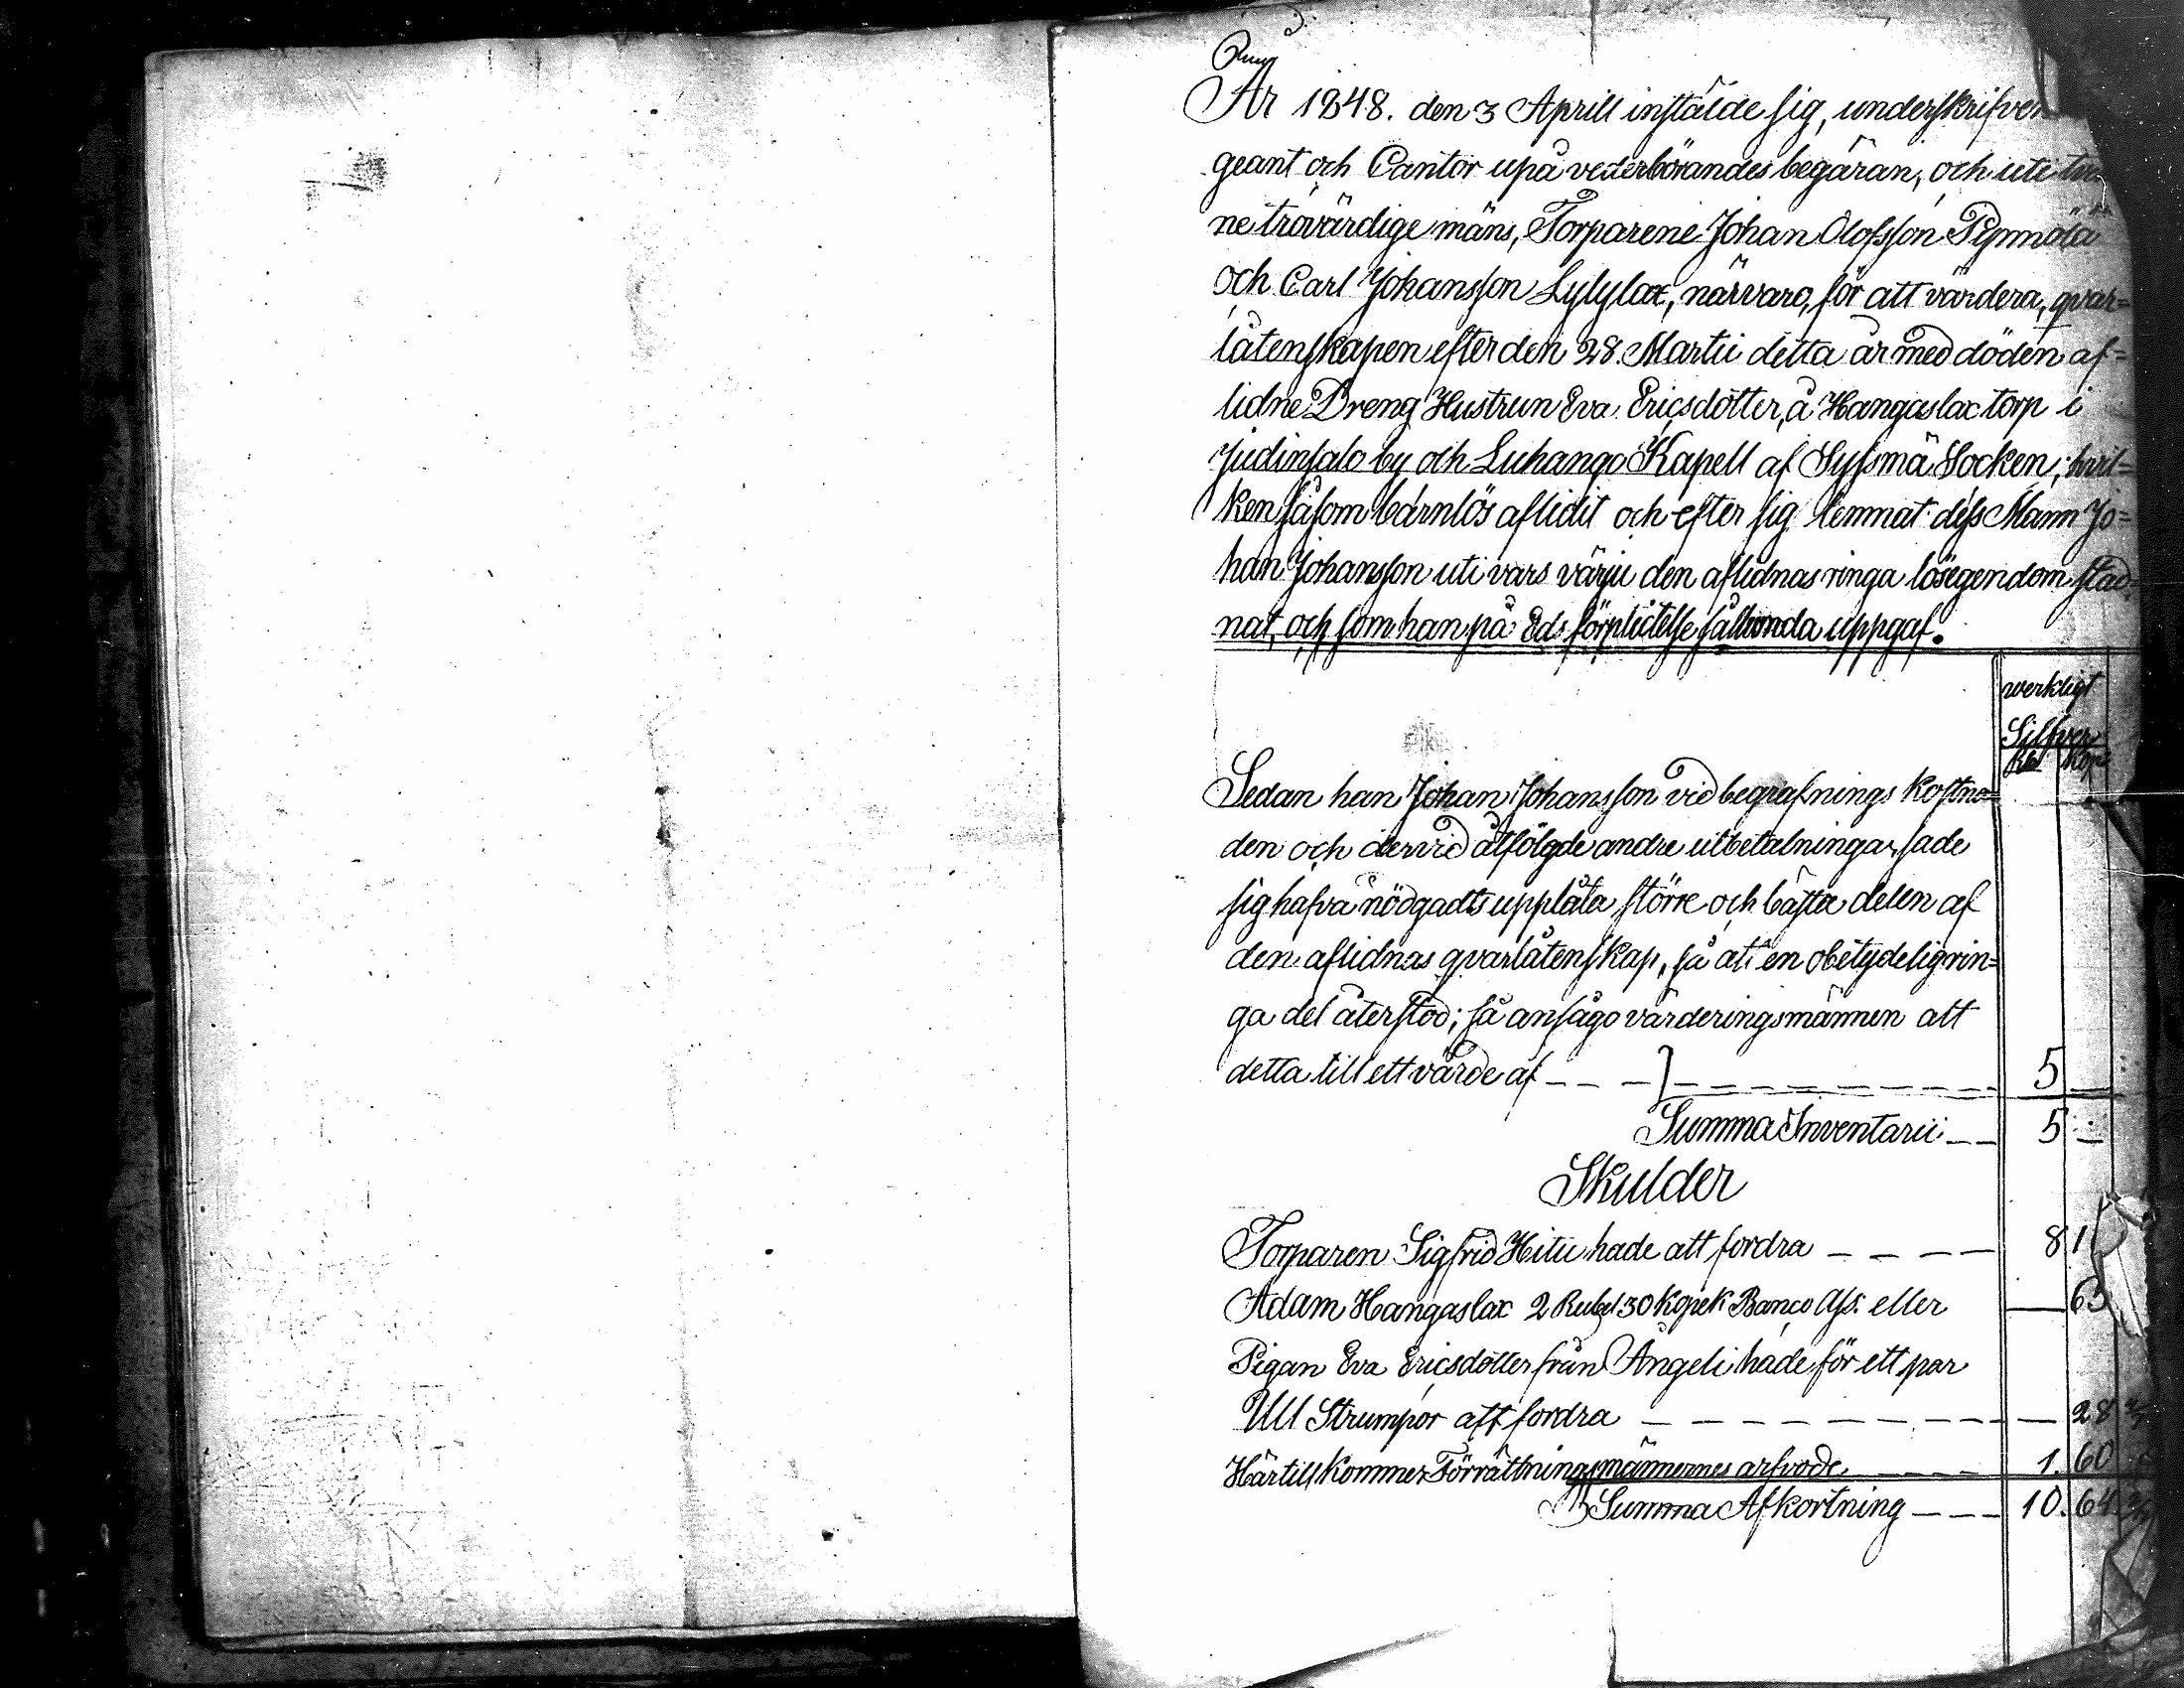 År 1848. den 3 Aprill instälde sig, underskrifven
geant och Cantor upå vederbörandes begäran, och uti
ne trovärdige mäns, Torparene Johan Olofsson Pynnölä
och Carl Johansson Lylylax, närvaro, för att värdera, qvar=
låtenskapen efter den 28. Martii detta år med döden af=
lidne Dreng Hustrun Eva Ericsdotter, å Hangaslax torp i
Judinsalo by och Luhango Kapell af Syssmä Socken; hvil=
ken såsom barnlös aflidit och efter sig lemnat dess Mann Jo=
han Johansson uti vars värju den aflidnas ringa lösegendom stad=
nat, och som han på Eds förplictelse sålunda uppgaf.
werkligt
Silfver
Rbl Kop
Sedan han Johan Johansson vid begrafnings kostna=
den och dervid åtfölgde andre utbetalningar, sade
sig hafva nödgadts upplåta större och bästa delen af
den aflidnas qvarlåtenskap, så att en obetydelig rin=
ga del återstod; så ansågo värderingsmännen att
detta till ett värde af _ _ _ 5 _
Summa Inventarii _ _ 5 _
Skulder
Torparen Sigfrid Hitii hade att fordra _ _ _ _ 8 11
Adam Hangaslax 2 Rubel 30 Kopek Banco Ass: eller _ 65
Pigan Eva Ericsdotter från Ångeli hade för ett par
Ull Strumpor att fordra _ _ _ _ _ _ 28
Härtill kommer Förrättningsmännernes arfvode _ _ _ 1. 60
Summa Afkortning _ _ _ 10. 64